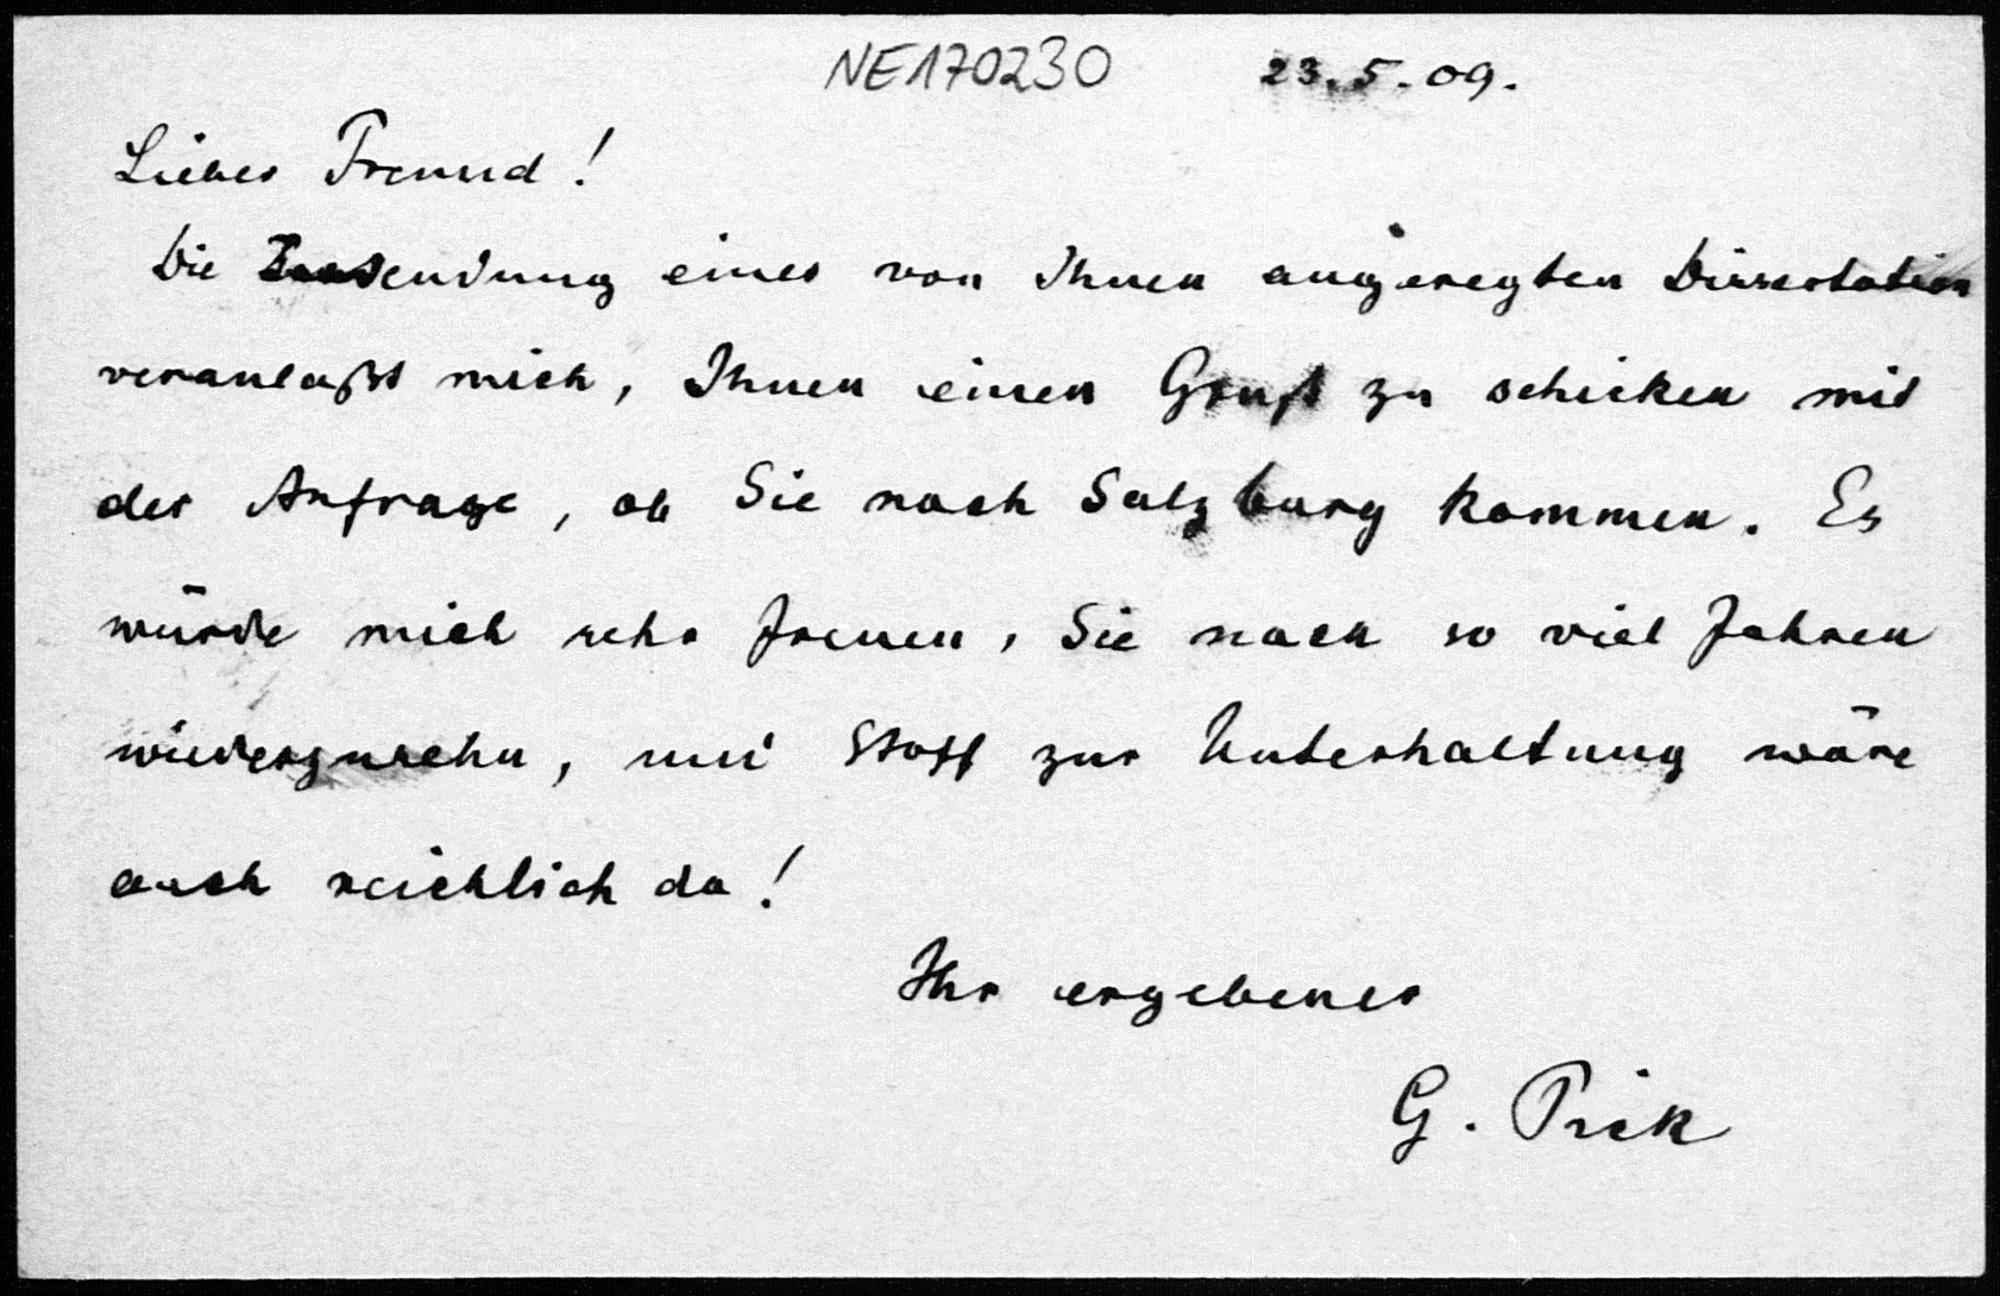 NE170230 23.5.09.
Lieber Freund!
Die Zusendung einer von Ihnen angeregten Dissertation
veranlaßt mich, Ihnen einen Gruß zu schicken mit
der Anfrage, ob Sie nach Salzburg kommen. Es
würde mich sehr freuen, Sie nach so viel Jahren
wiederzusehn, und Stoff zur Unterhaltung wäre
auch reichlich da!
Ihr ergebener
G. Pick